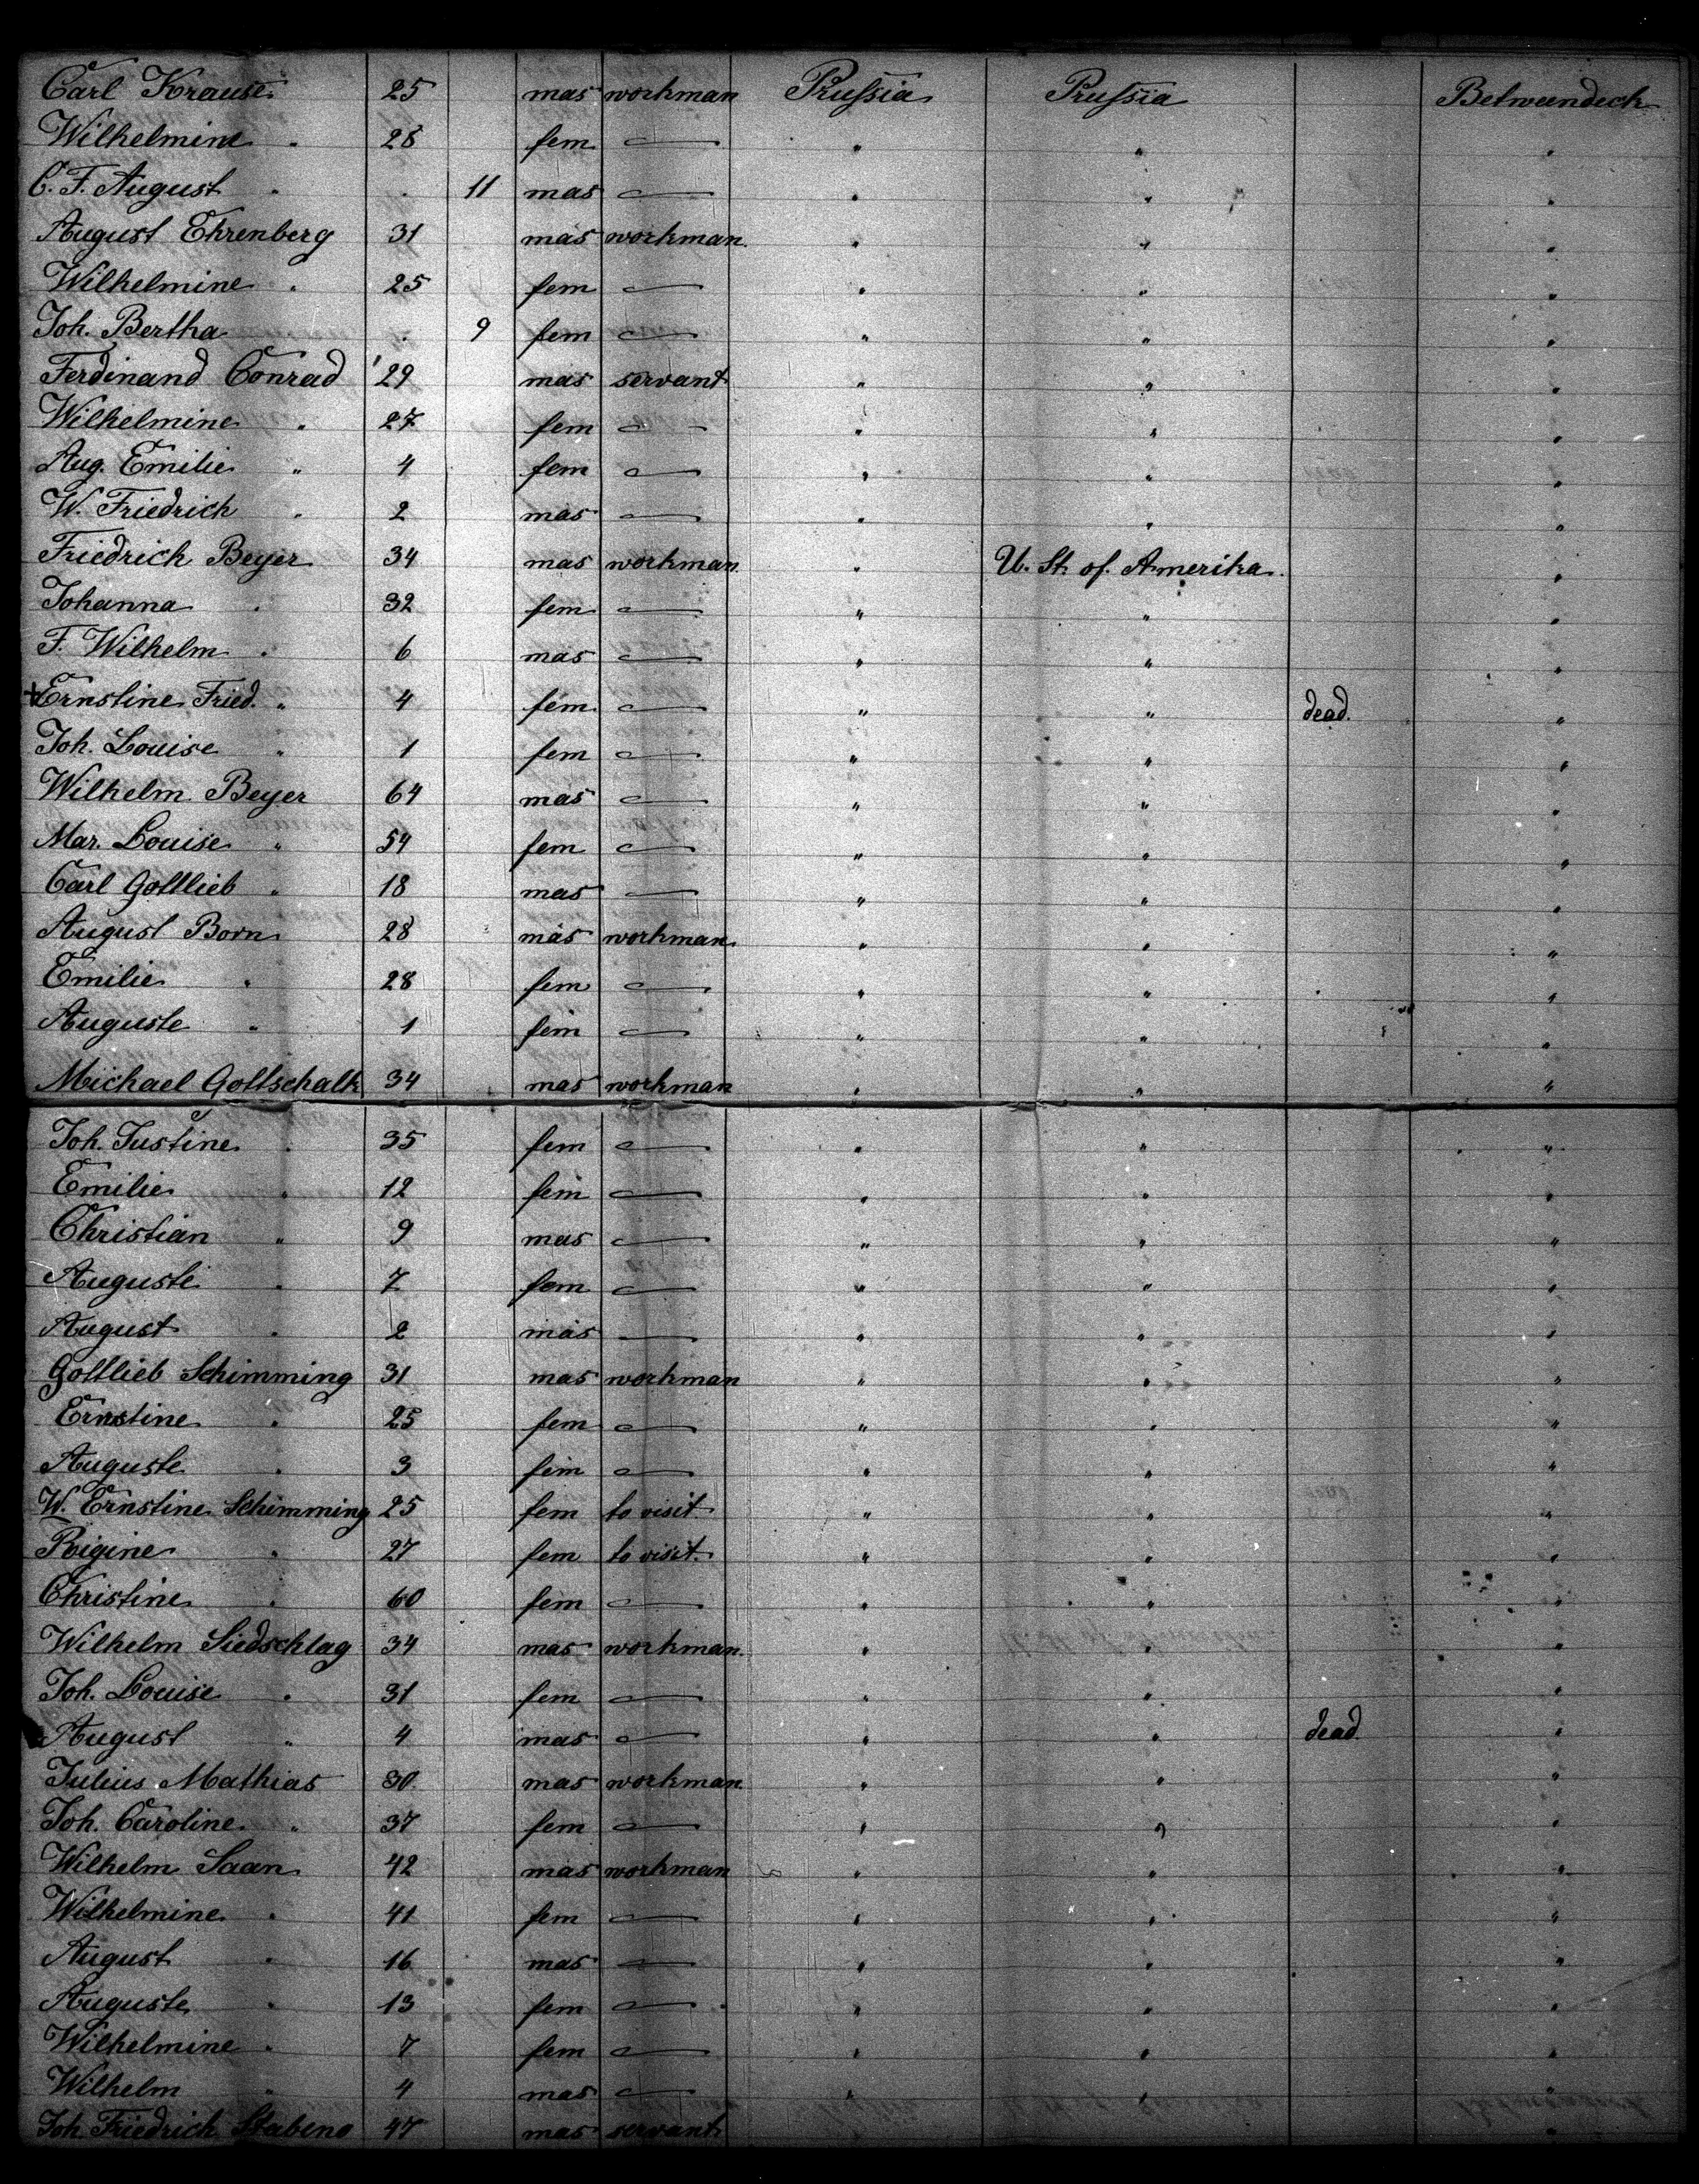 Carl Krause 25 mas workman Prussia Prussia Betweendeck
Wilhelmine " 28 fem — " " "
C. F. August " . 11 mas — " " "
August Ehrenberg 31 mas workman " " "
Wilhelmine " 25 fem — " " "
Joh. Bertha . 9 fem — " " "
Ferdinand Conrad 29 mas servant " " "
Wilhelmine " 27 fem — " " "
Aug. Emilie " 4 fem — " " "
W. Friedrich " 2 mas — " " "
Friedrich Beyer 34 mas workman " U. St. of. Amerika. "
Johanna " 32 fem — " " "
F. Wilhelm " 6 mas — " " "
+ Ernstine Fried. " 4 fem — " " dead. "
Joh. Louise " 1 fem — " " "
Wilhelm Beyer 64 mas — " " "
Mar. Louise " 54 fem — " " "
Carl Gottlieb " 18 mas — " " "
August Born 28 mas workman " " "
Emilie " 28 fem — " " "
Auguste " 1 fem — " " "
Michael Gottschalk 34 mas workman " " "
Joh. Justine " 35 fem — " " "
Emilie " 12 fem — " " "
Christian " 9 mas — " " "
Auguste " 7 fem — " " "
August " 2 mas — " " "
Gottlieb Schimming 31 mas workman " " "
Ernstine " 25 fem — " " "
Auguste " 3 fem — " " "
W. Ernstine Schimming 25 fem to visit " " "
Rigine " 27 fem to visit. " " "
Christine " 60 fem — " " "
Wilhelm Siedschlag 34 mas workman. " " "
Joh. Louise " 31 fem — " " "
August " 4 mas — " " dead. "
Julius Mathias 30 mas workman " " "
Joh. Caroline " 37 fem — " " "
Wilhelm Saan 42 mas workman " " "
Wilhelmine " 41 fem — " " "
August " 16 mas — " " "
Auguste " 13 fem — " " "
Wilhelmine " 7 fem — " " "
Wilhelm " 4 mas — " " "
Joh Friedrich Stabeno 47 mas servant "